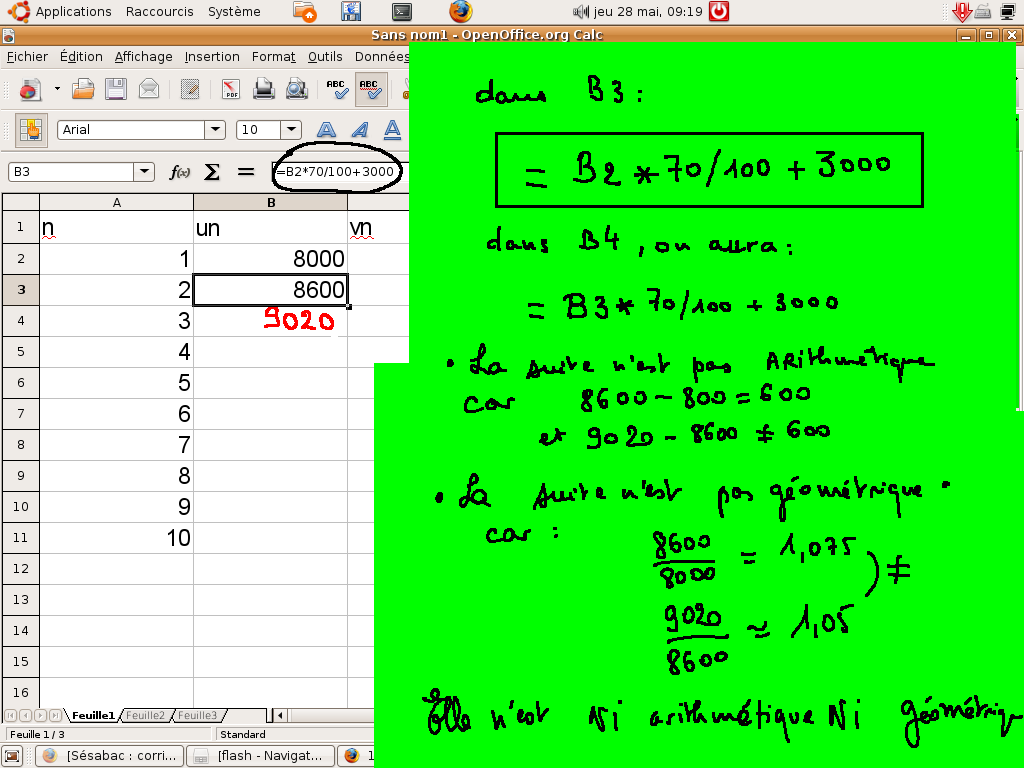 Applications Raccourcis Système jeu 28 mai, 09:19
Sans nom1 - OpenOffice.org Calc
Fichier Édition Affichage Insertion Format Outils Données
ABC ABC
Arial 10 A A A
B3 f(x) Σ = =B2*70/100+3000
A B
1 n un vn
2 1 8000
3 2 8600
4 3 9020
5 4
6 5
7 6
8 7
9 8
10 9
11 10
12
13
14
15
16
Feuille1 Feuille2 Feuille3
Feuille 1 / 3 Standard
[Sésabac : corri... [flash - Navigat... 1
dans B3 :
= B2 * 70/100 + 3000
dans B4 , on aura :
= B3 * 70/100 + 3000
• La suite n'est pas ARithmétique
car 8600 - 800 = 600
et 9020 - 8600 ≠ 600
• La suite n'est pas géométrique •
car :
8600/8000 = 1,075
) ≠
9020/8600 ≃ 1,05
Elle n'est Ni arithmétique Ni géométriqu